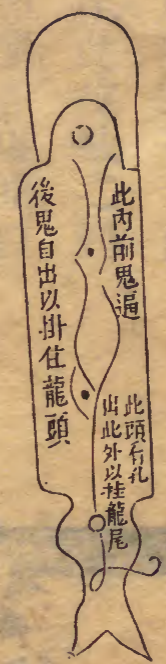 此內前鬼遍
此頭有孔
出此外以挂龍尾
後鬼自出以掛住龍頭